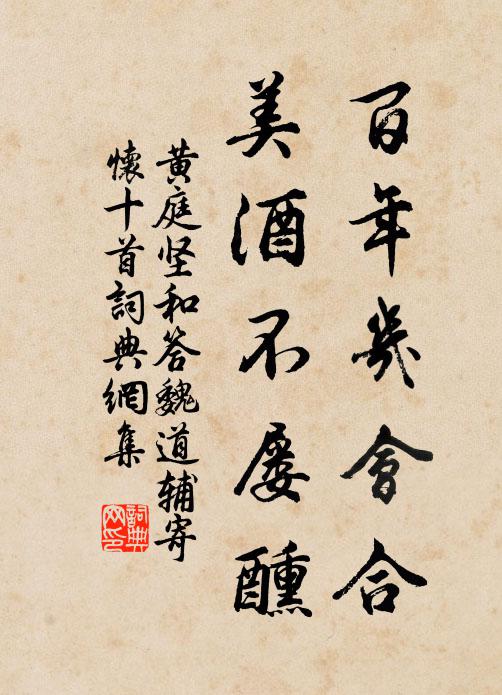 百年幾會合
美酒不屡醺
黄庭坚和答魏道辅寄
懷十首詞典網集
詞典
网印